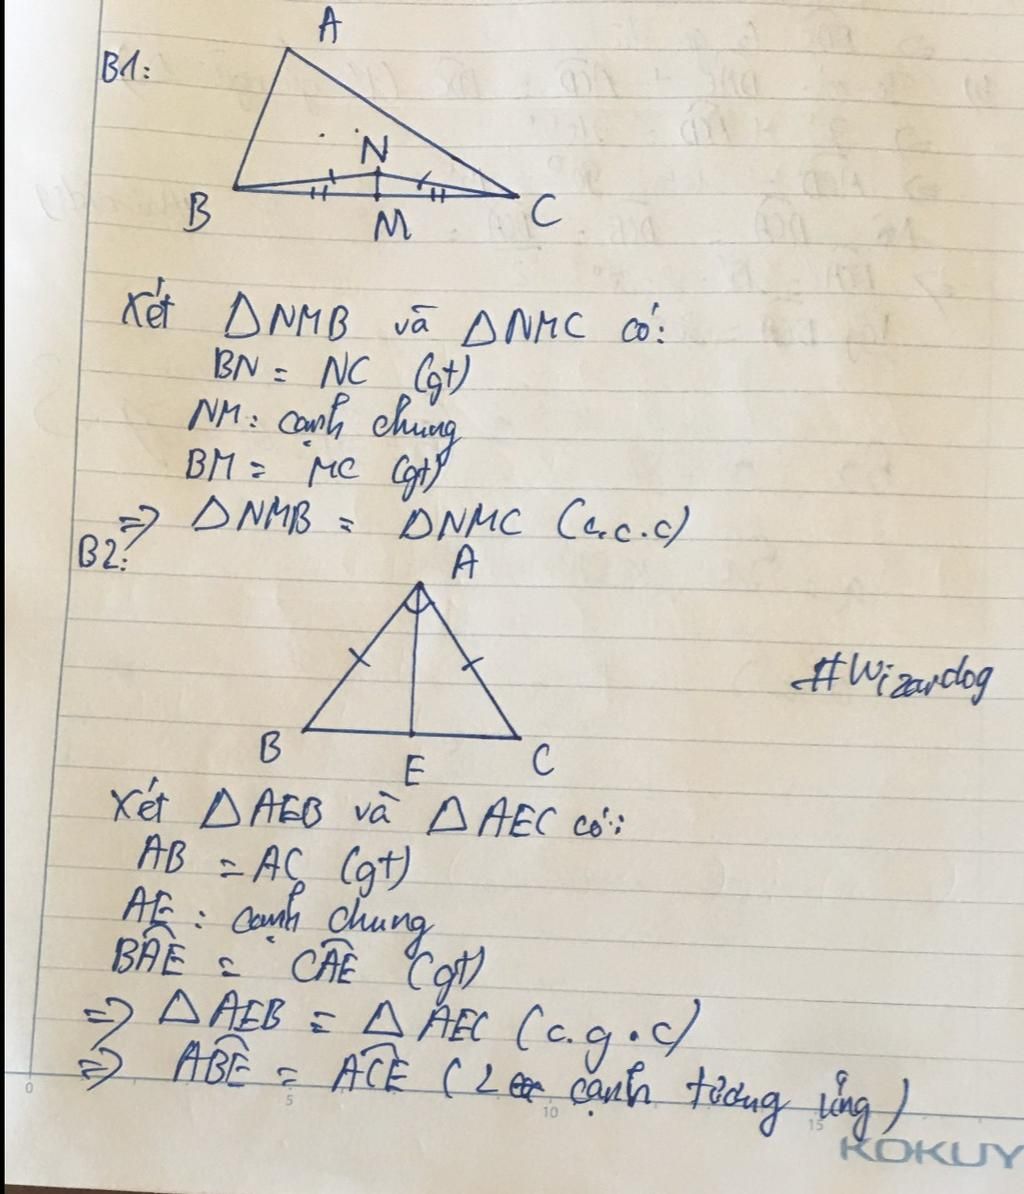 B1:
A
N
B
M
C
Xét ΔNMB và ΔNMC có:
BN = NC (gt)
NM: cạnh chung
BM = MC (gt)
=> ΔNMB = ΔNMC (c.c.c)
B2:
A
#Wizardog
B
E
C
Xét ΔAEB và ΔAEC có:
AB = AC (gt)
AE: cạnh chung
BÂE = CÂE (gt)
=> ΔAEB = ΔAEC (c.g.c)
=> AB̂E = AĈE (2 cạnh tương ứng)
0 5 10 15
KOKUY